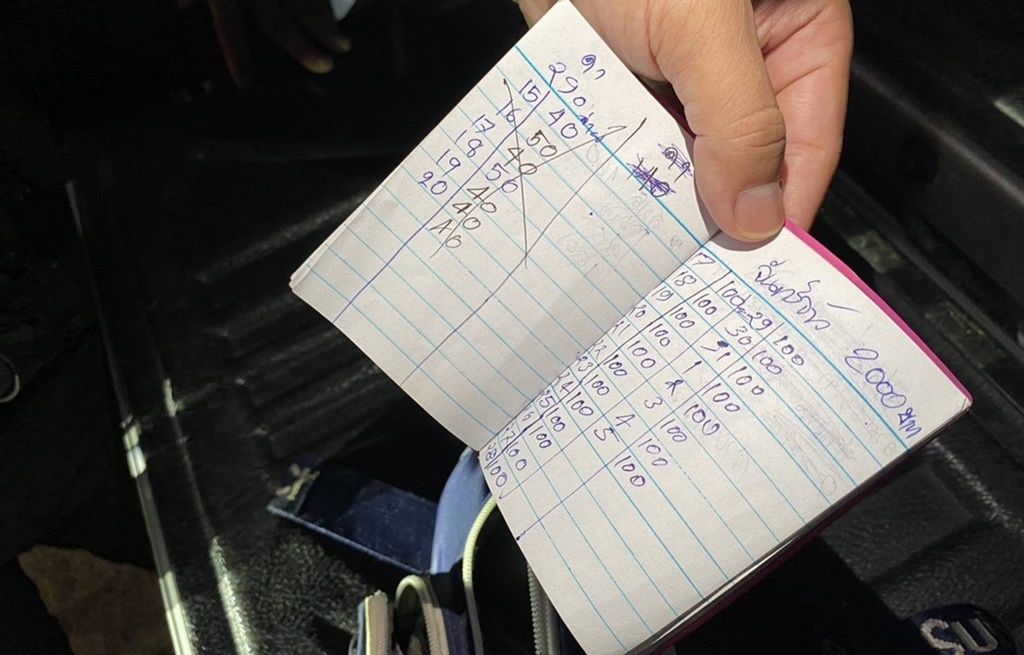 290
15 40
16 50
17 40
18 50
19 40
20 40
40
2000 บาท
17 100 29 100
18 100 30 100
19 100 31 100
20 100 1 100
21 100 2 100
22 100 3 100
23 100 4 100
24 100 5 100
25 100
26 100
27 100
28 100
SU